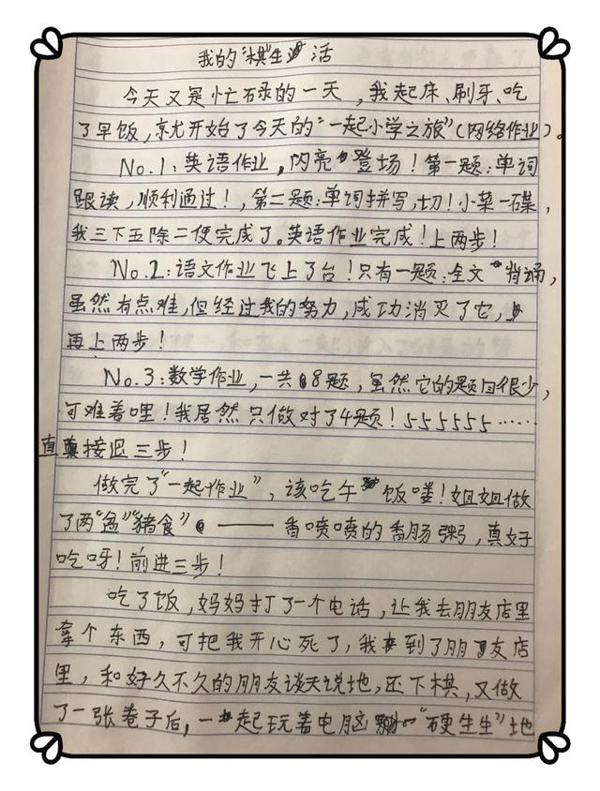 我的“棋”生活
今天又是忙碌的一天，我起床、刷牙、吃
了早饭，就开始了今天的“一起小学之旅”（网络作业）。
No.1：英语作业，闪亮登场！第一题：单词
跟读，顺利通过！，第二题：单词拼写，切！小菜一碟，
我三下五除二便完成了。英语作业完成！上两步！
No.2：语文作业飞上了台！只有一题：全文背诵，
虽然有点难，但经过我的努力，成功消灭了它，
再上两步！
No.3：数学作业，一共8题，虽然它的题目很少，
可难着哩！我居然只做对了4题！555555……
直接退三步！
做完了“一起作业”，该吃午饭喽！姐姐做
了两“盆”“猪食”——香喷喷的香肠粥，真好
吃呀！前进三步！
吃了饭，妈妈打了一个电话，让我去朋友店里
拿个东西，可把我开心死了，我来到了朋友店
里，和好久不久的朋友谈天说地，还下棋，又做
了一张卷子后，一起玩着电脑“硬生生”地